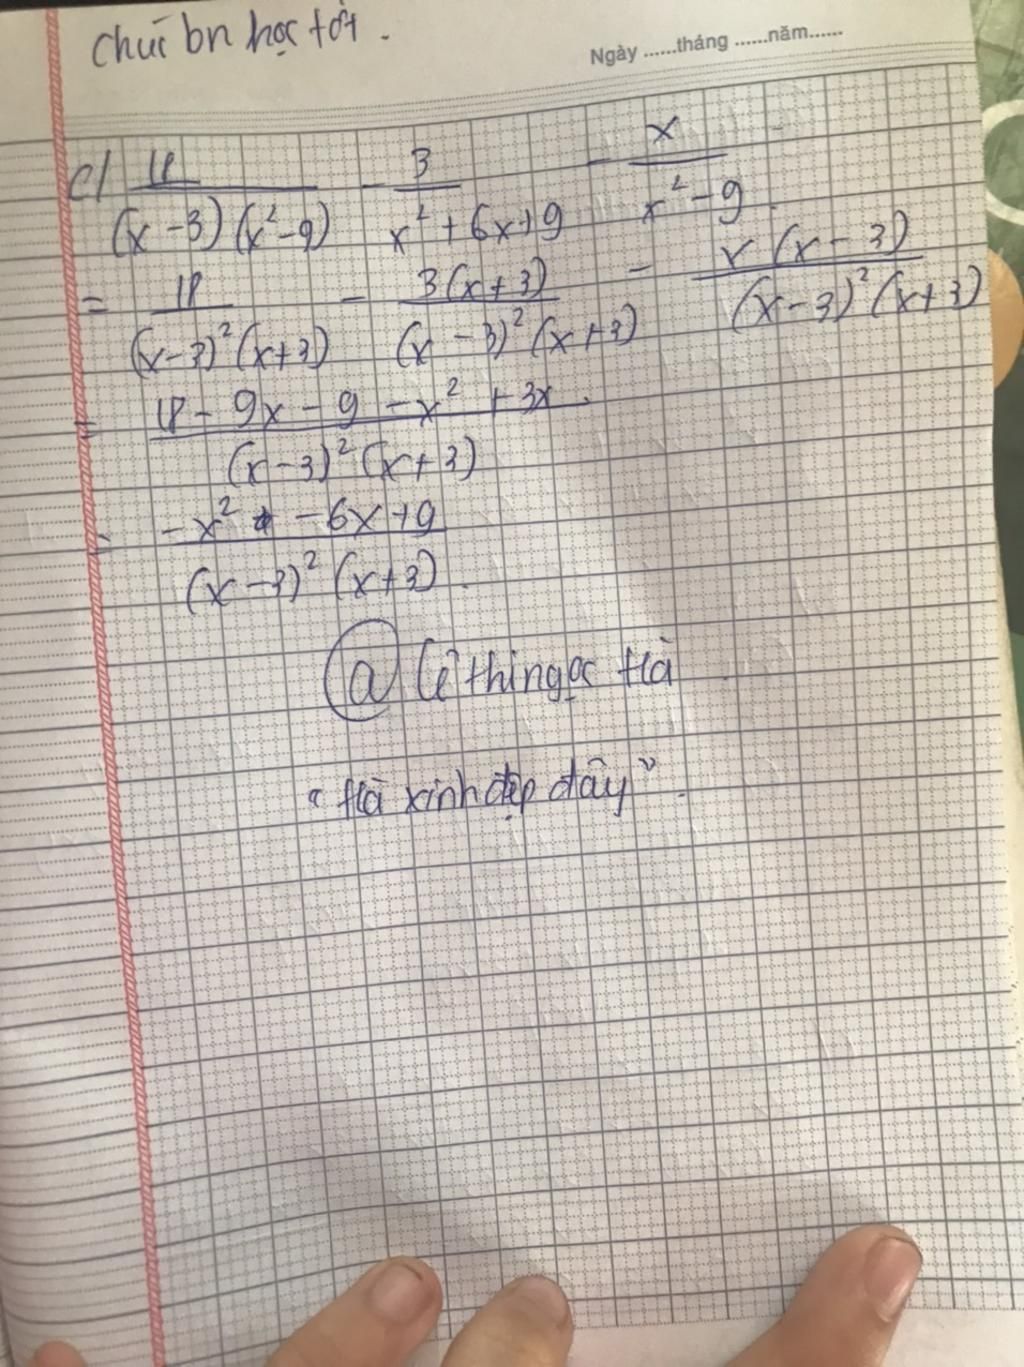 Chúc bn học tốt.
Ngày ......tháng ......năm......
c/ 18/((x-3)(x²-9)) - 3/(x²+6x+9) - x/(x²-9)
= 18/((x-3)²(x+3)) - 3(x+3)/((x-3)²(x+3)) - x(x-3)/((x-3)²(x+3))
= (18-9x-9-x²+3x)/((x-3)²(x+3))
= (-x² -6x+9)/((x-3)²(x+3))
@ Lê thị ngọc Hà
"Hà xinh đẹp đây".